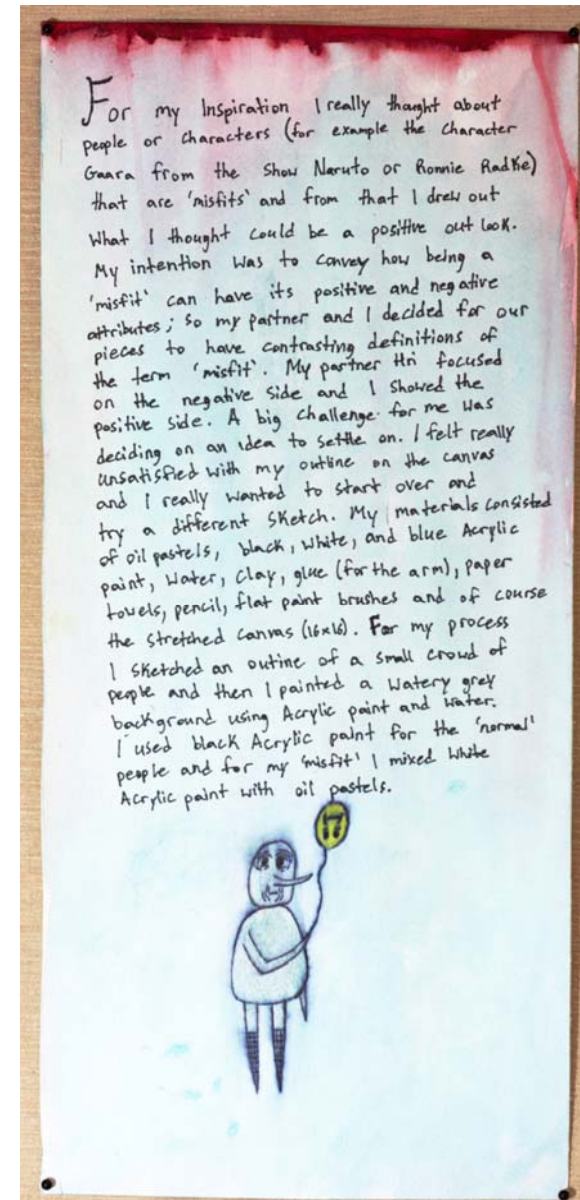 For my Inspiration I really thought about
people or characters (for example the character
Gaara from the Show Naruto or Ronnie Radke)
that are 'misfits' and from that I drew out
What I thought could be a positive out look.
My intention was to convey how being a
'misfit' can have its positive and negative
attributes; so my partner and I decided for our
pieces to have contrasting definitions of
the term 'misfit'. My partner Hri focused
on the negative side and I showed the
positive side. A big challenge for me was
deciding on an idea to settle on. I felt really
unsatisfied with my outline on the canvas
and I really wanted to start over and
try a different sketch. My materials consisted
of oil pastels, black, white, and blue Acrylic
paint, water, clay, glue (for the arm), paper
towels, pencil, flat paint brushes and of course
the stretched canvas (16x16). For my process
I sketched an outine of a small crowd of
people and then I painted a watery grey
background using Acrylic paint and water.
I used black Acrylic paint for the 'normal'
people and for my 'misfit' I mixed white
Acrylic paint with oil pastels.